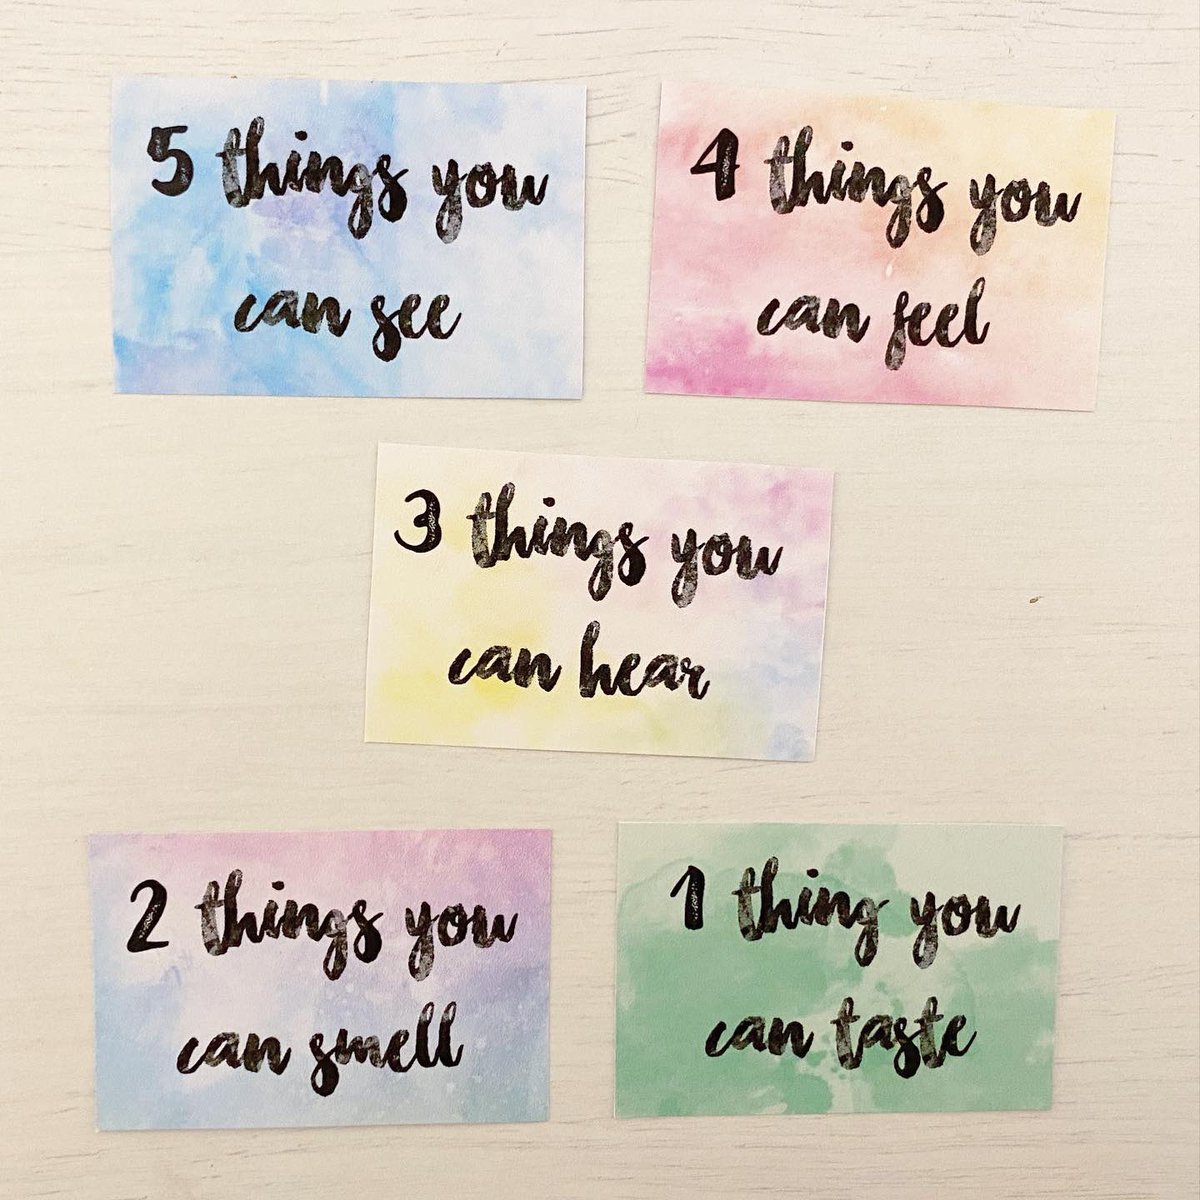 5 things you
can see
4 things you
can feel
3 things you
can hear
2 things you
can smell
1 thing you
can taste